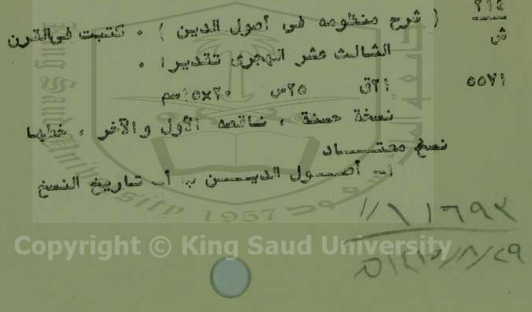 ٢١٤ ( شرح منظومه فى أصول الدين ) . كتبت فى القرن
ش الثالث عشر الهجرى تقديرا .
٥٥٧١ ٢١ق ٢٥س ٢٠×١٥سم
نسخة حسنة ، ناقصه الأول والآخر ، خطها
نسخ معتاد
١- أصول الدين ب أ- تاريخ النسخ
1957
Copyright © King Saud University